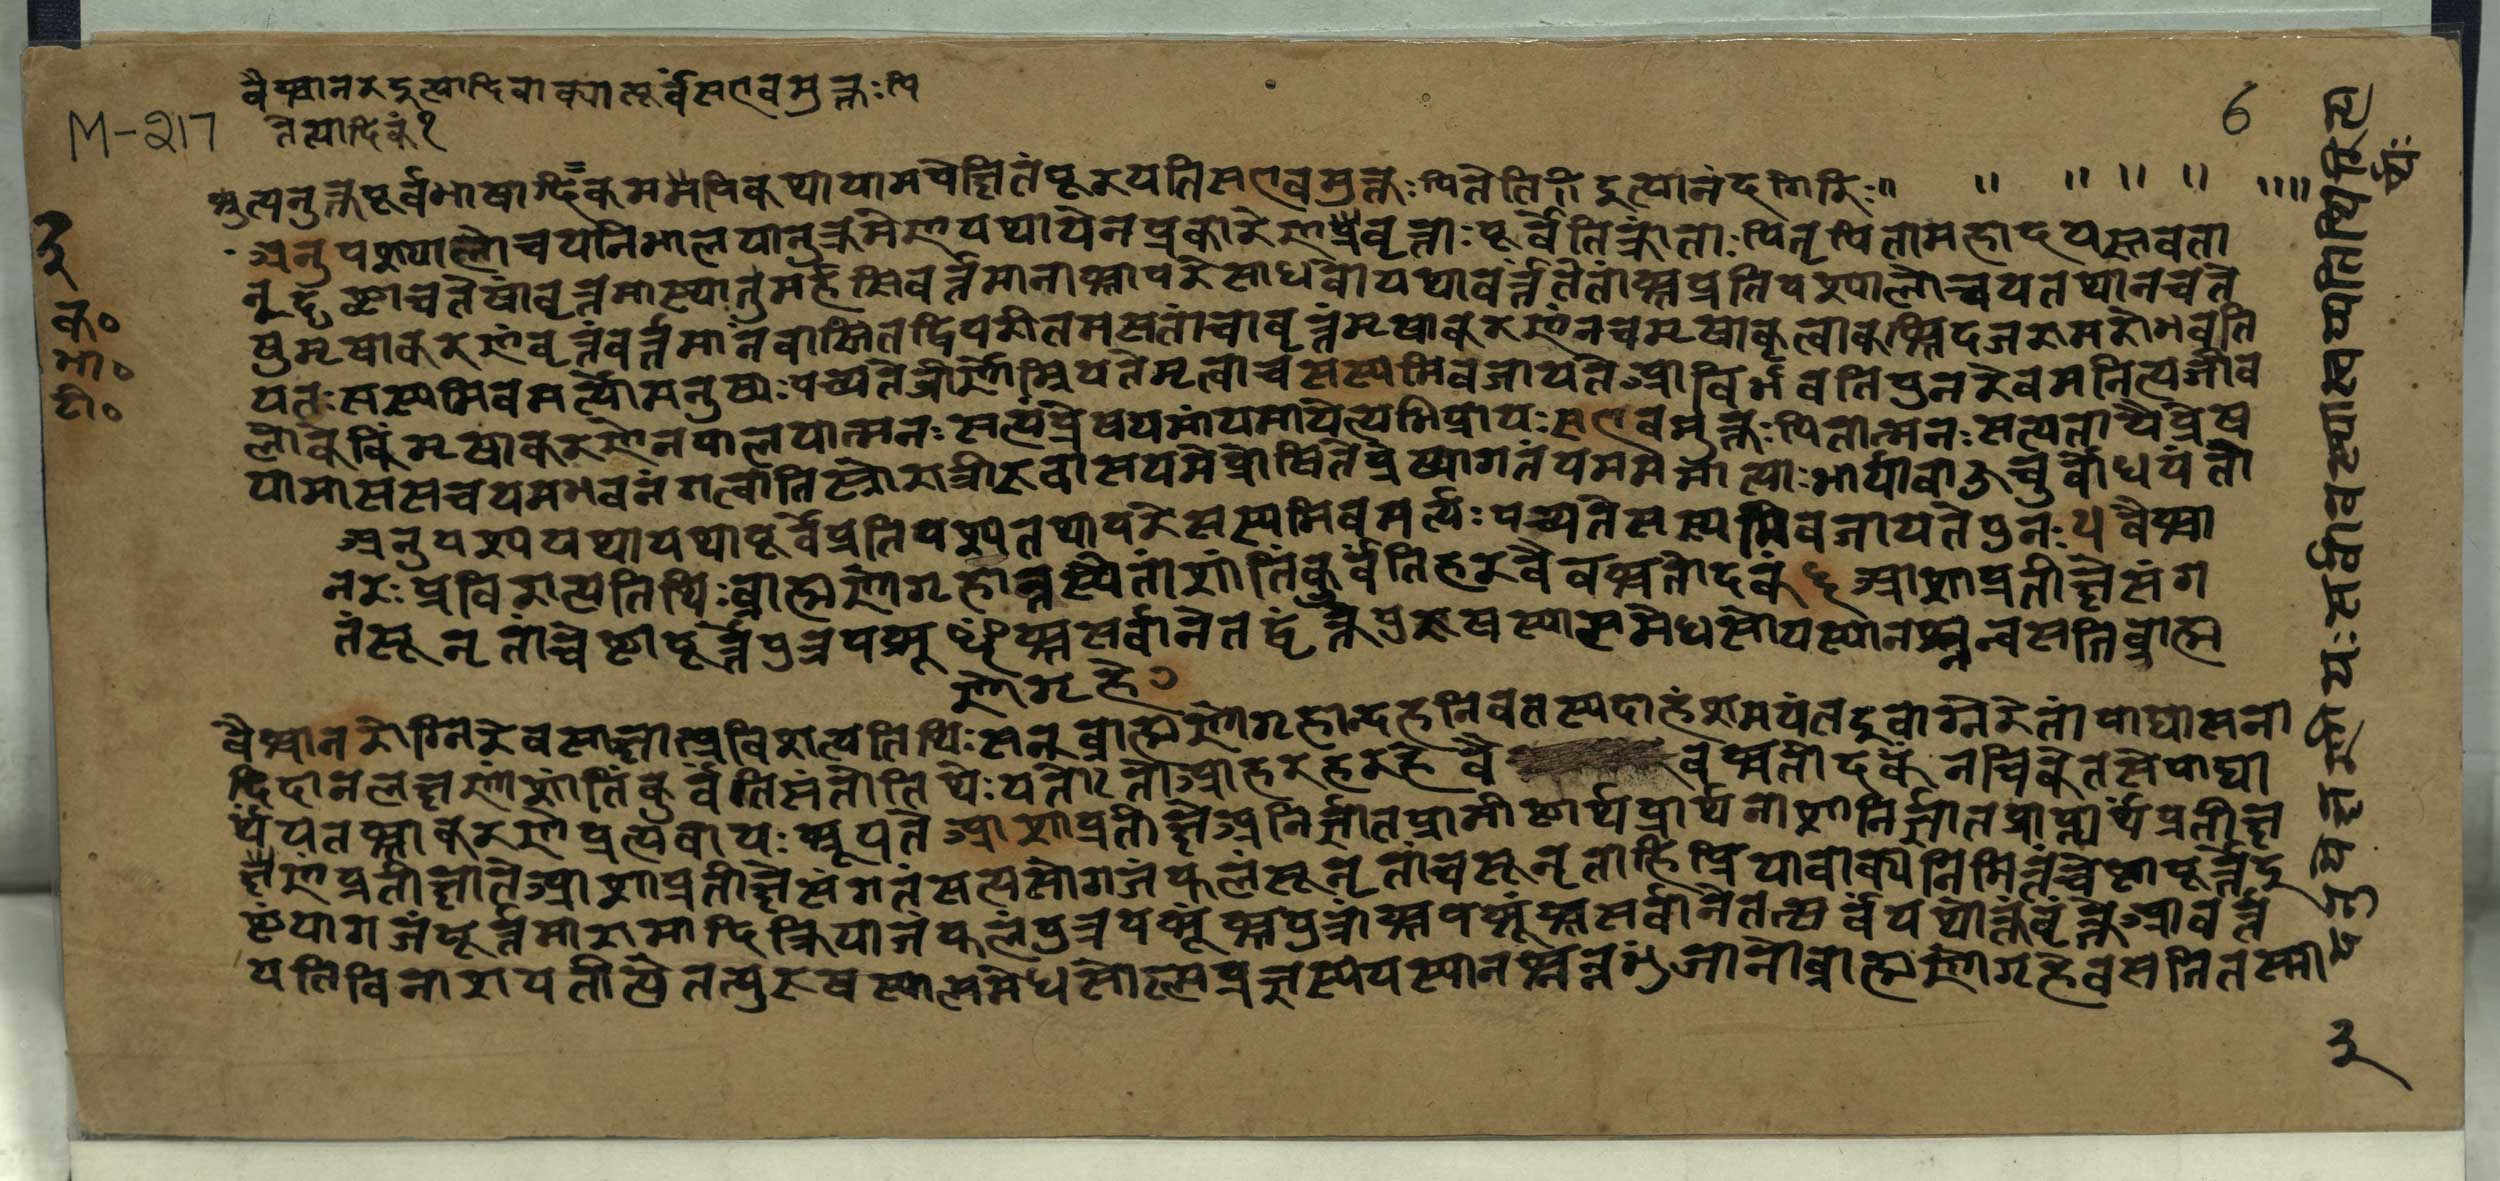 वैश्वानरदुत्यादिवाक्यात्पूर्वंसएवमुक्तःपि
तेत्यादिकं१
M-217
6
श्रुत्यनुक्तपूर्वभाषादिकममपिकथायामपेक्षितंपूरयतिसएवमुक्तःपितेतिगिदुत्यानंदगिरिः॥ ॥ ॥ ॥ ॥ ॥॥
अनुपश्यालोचयनिभालयानुक्रमेणयथायेनप्रकारेणप्रवृत्ताःपूर्वेतिक्रांताःपितृपितामहादयस्तवता
नुदृष्ट्वाचतेषांवृत्तमास्थातुमर्हसिवर्त्तमानाश्चापरेसाधवोयथावर्त्तंतेतांश्चप्रतिपश्यालोचयतथानचते
षुमृषाकरणंवृत्तंवर्त्तमानंवास्तितद्विपरीतमसतांचावृत्तंमृषाकरणंनचमृषाकृत्वाकश्चिदजरामरोभवति
यतःसस्यमिवमर्त्योमनुष्यःपच्यतेजीर्णोम्रियतेमृत्वाचसस्यमिवजायतेआविर्भवतिपुनरेवमनित्यजीव
लोकेकिंमृषाकरणेनपालयात्मनःसत्यंप्रेषयमांयमायेत्यभिप्रायःसएवमुक्तःपितात्मनःसत्यतायैप्रेष
यामाससचयमभवनंगत्वातिस्रोरात्रीरुवासयमेप्रोषितेप्रोष्यागतंयममैमात्याःभार्यावाऊचुर्बोधयंतो
अनुपश्ययथायथापूर्वेप्रतिपश्यतथापरेसस्यमिवमर्त्यःपच्यतेसस्यमिवजायतेपुनः५वैश्वा
नरःप्रविशत्यतिथिःब्राह्मणोगृहांस्तस्यैतांशांतिंकुर्वंतिहरवैवस्वतोदकं६आशाप्रतीक्षेसंग
तंसूनृतांचेष्टापूर्त्तेपुत्रपशूꣳश्चसर्वानेतद्वृंक्तेपुरुषस्याल्पमेधसोयस्यानश्नन्वसतिब्राह्म
णोगृहे७
वैश्वानरोग्निरेवसाक्षात्प्रविशत्यतिथिःसन्ब्राह्मणोगृहान्दहन्निवतस्यदाहंशमयंतइवाग्नेरेतांपाद्यासना
दिदानलक्षणांशांतिंकुर्वंतिसंतोतिथेःयतोऽतोआहरहरहेवैवस्वतोदकंनचिकेतसेपाद्या
र्थंयतश्चाकरणेप्रत्यवायःश्रूयतेआशाप्रतीक्षेअनिर्ज्ञातप्राप्तीष्टार्थप्रार्थनाआशानिर्ज्ञातप्राप्त्यर्थप्रतीक्ष
क्षणंप्रतीक्षातेआशाप्रतीक्षेसंगतंसत्संयोगजंफलंसूनृतांचसूनृताहिप्रियावाक्यनिमित्तंचेष्टापूर्त्तेइ
ष्टंयागजंपूर्त्तमारामादिक्रियाजंफलंपुत्रपशूंश्चपुत्रांश्चपशूंश्चसर्वानेतत्सर्वंयथोक्तंवृंक्तेआवर्त्त
यतिविनाशयतीत्येतत्पुरुषस्याल्पमेधसोल्पप्रज्ञस्ययस्यानश्नन्नभुंजानोब्राह्मणोगृहेवसतितस्मा
३
क॰
भा॰
टी॰
३